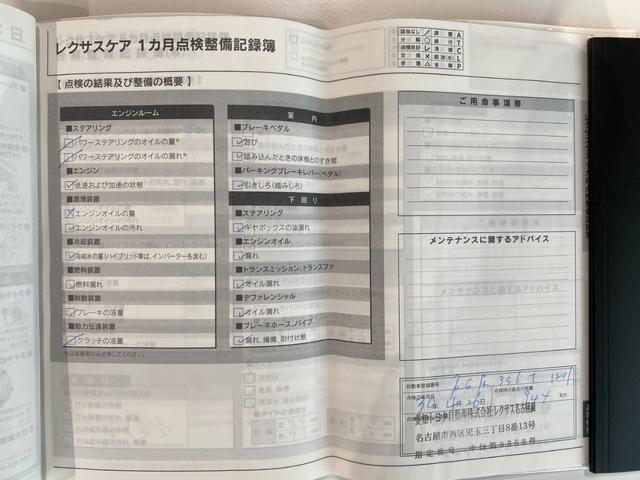 レクサスケア 1カ月点検整備記録簿
該当なし ／ 調整 A
分解 ○ 締付 T
点検良好 レ 清掃 C
交換 × 給油(水) L
修理 △ 省略 P
【 点検の結果及び整備の概要 】
エンジンルーム
■ステアリング
パワーステアリングのオイルの量※
パワーステアリングのオイルの漏れ※
■エンジン
低速および加速の状態
■潤滑装置
エンジンオイルの量
エンジンオイルの汚れ
■冷却装置
冷却水の量(ハイブリッド車は、インバーターを含む)
■燃料装置
燃料漏れ
■制動装置
ブレーキの液量
■動力伝達装置
クラッチの液量
室内
■ブレーキペダル
遊び
踏み込んだときの床板とのすき間
■パーキングブレーキレバー(ペダル)
引きしろ(踏みしろ)
下回り
■ステアリング
ギヤボックスの油漏れ
■エンジンオイル
漏れ
■トランスミッション、トランスファ
オイル漏れ
■デファレンシャル
オイル漏れ
■ブレーキホース、パイプ
漏れ、損傷、取付状態
ご用命事項等
メンテナンスに関するアドバイス
自動車登録番号
点検時の総走行距離
4月26日
944 km
愛知トヨタ自動車株式会社レクサス名古屋西
名古屋市西区児玉三丁目8番13号